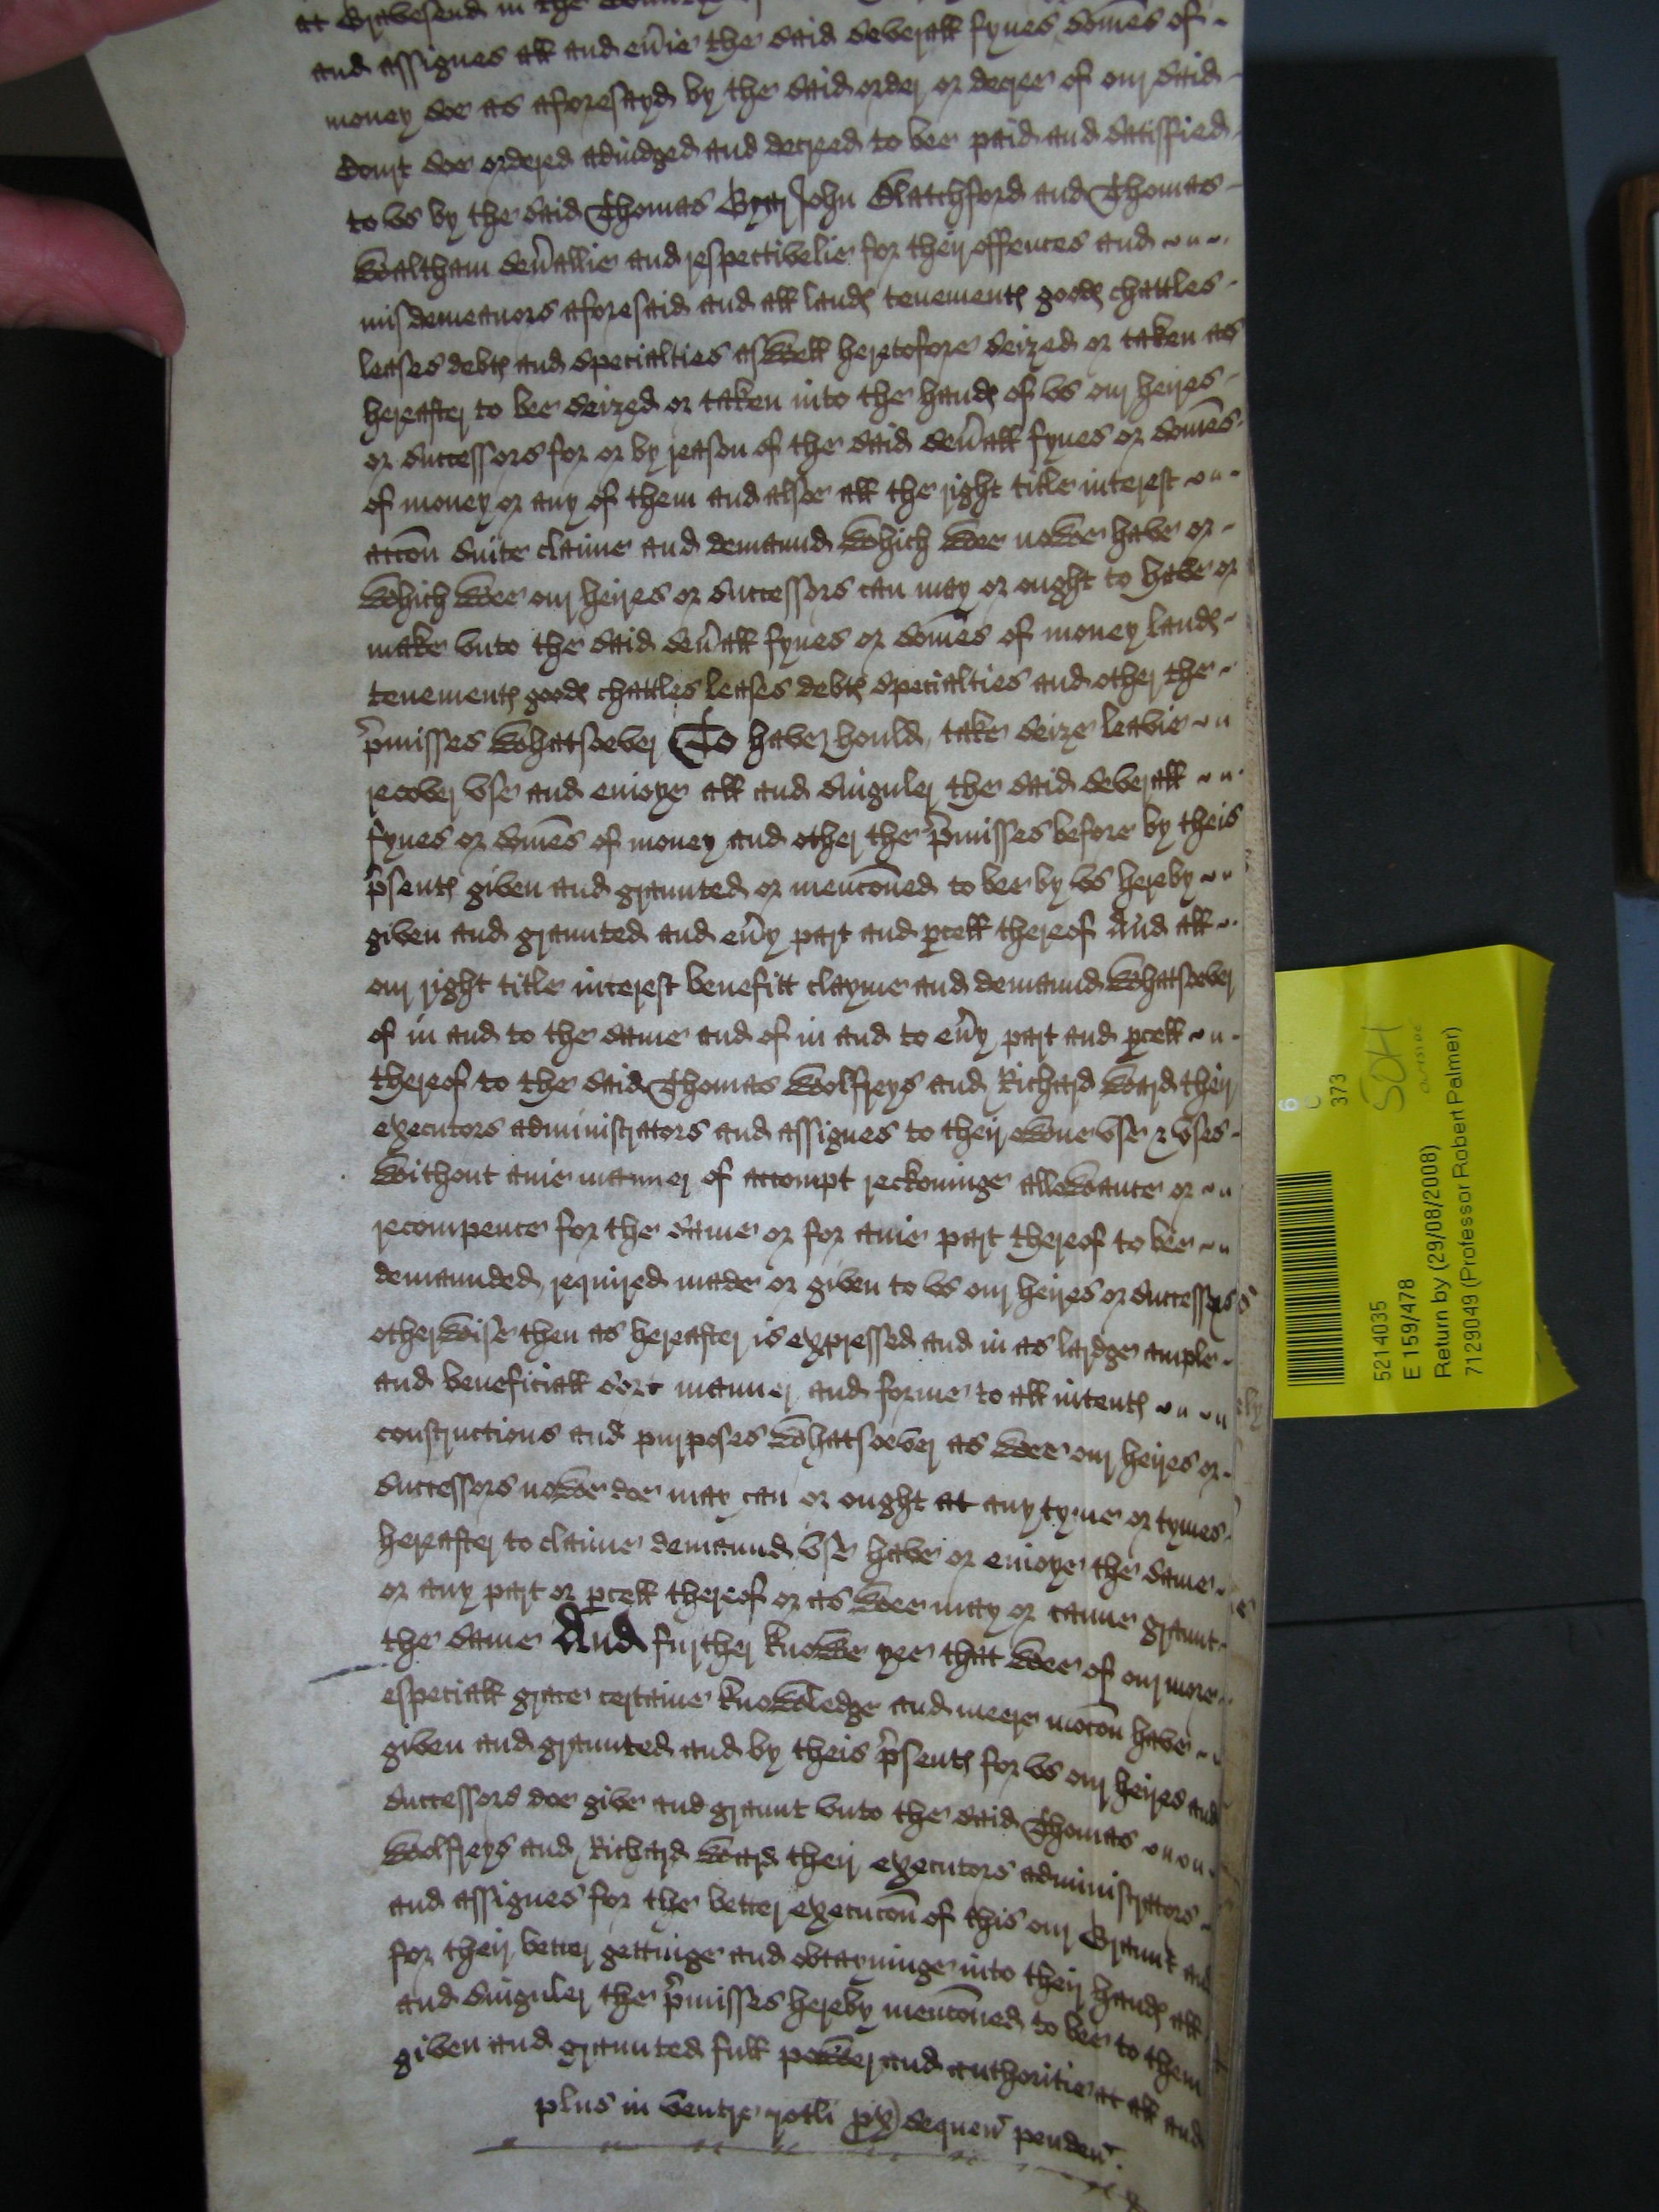 at Gravesend in the
and assignes all and eũie the said severall fynes som̃es of
money soe as aforesayd by the said order or decree of our said
Court soe ordered adiudged and decreed to bee paid and satisfied
to vs by the said Thomas Gray John Slatchford and Thomas
Waltham seũallie and respectivelie for their offences and
misdemeanors aforesaid and all landes tenementes goodes chattles
leases debtes and specialties aswell heretofore seized or taken as
hereafter to bee seized or taken into the handes of vs our heires
or successors for or by reason of the said seũall fynes or som̃es
of money or any of them and alsoe all the right title interest
accõn suite claime and demaund which wee nowe have or
which wee our heires or successors can may or ought to have or
make vnto the said seũall fynes or som̃es of money landes
tenementes goodes chattles leases debtes specialties and other the
p̃misses whatsoever To have hould, take seize leavie
recover vse and enioye all and singuler the said severall
fynes or som̃es of money and other the p̃misses before by theis
p̃sentes given and graunted or mencõned to bee by vs hereby
given and graunted and eũy part and pcell thereof And all
our right title interest benefitt clayme and demaund whatsoever
of in and to the same and of in and to eũy part and pcell
thereof to the said Thomas Wolfreys and Richard Ward their
executors administrators and assignes to their owne vse & vses
without anie manner of accompt reckoninge allewance or
recompence for the same or for anie part thereof to bee
demaunded required made or given to vs our heires or successors
otherwise then as hereafter is expressed and in as lardge ample
and beneficiall sort manner and forme to all intentes
constructions and purposes whatsoever as wee our heires or
successors nowe doe may can or ought at any tyme or tymes
hereafter to claime demaund vse have or enioye the same
or any part or pcell thereof or as wee may or canne graunt
the same And further knowe yee that wee of our more
especiall grace certaine knowledge and meere mocõn have
given and graunted and by theis p̃sentes for vs our heires and
successors doe give and graunt vnto the said Thomas
Wolfreys and Richard Ward their executors administrators
and assignes for the better execucõn of this our Graunt and
for their better gettinge and obtayninge into their handes all
and singuler the p̃misses hereby mencõned to bee to them
given and graunted full power and authoritie at all and
plus in ventre rotli px sequeñ pendeñ.
6
C
373
SOH
5214035
E 159/478
Return by (29/08/2008)
7129049 (Professor Robert Palmer)